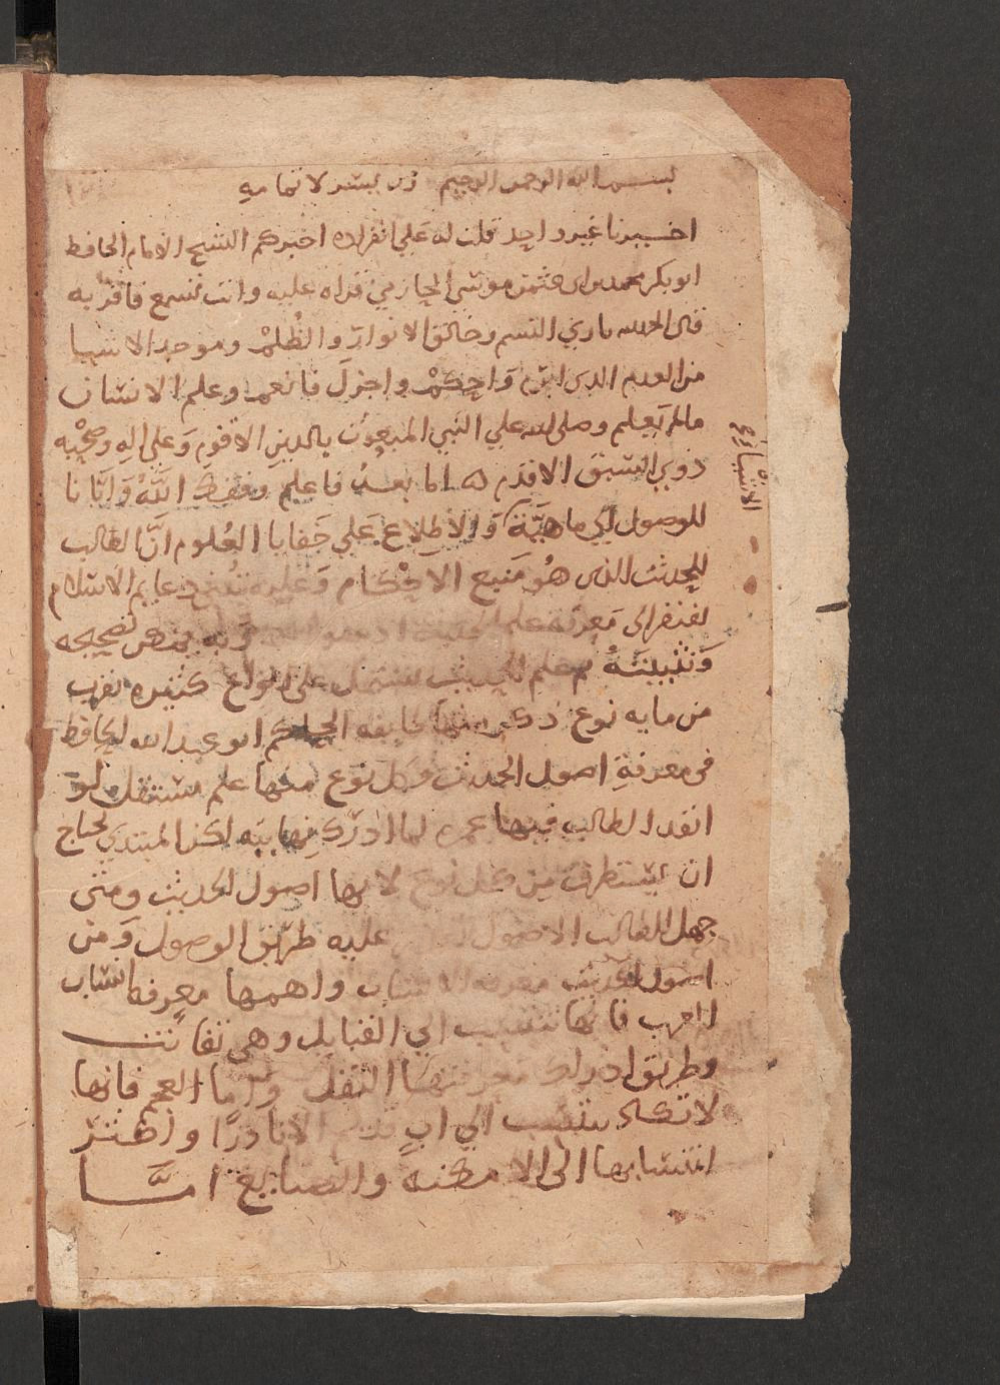 بسم الله الرحمن الرحيم رب يسر لاتمامه
اخبرنا غير واحد قلت له علي انفراده اخبركم الشيخ الامام الحافظ
ابو بكر محمد بن ابي عثمن موسي الحازمي قراه عليه وانت تسمع فاقر به
قال الحمد لله باري النسم وخالق الانوار والظلم وموجد الاشيا
من العدم الذي ابرم واحكم واجزل فانعم وعلم الانسان
مالم يعلم وصلى الله علي النبي المبعوث بالدين الاقوم وعلى اله وصحبه
ذوي السبق الاقدم اما بعد فاعلم وفقك الله وايانا
للوصول الي ماهية والاطلاع علي خفايا العلوم ان الطالب
للحديث الذي هو منبع الاحكام وعليه دعايم الاسلام
لفتقر الى معرفة علم وبه يظهر تصحيحه
وتثبيته ثم علم الحديث يشتمل على انواع كثيره تقرب
من مايه نوع ذكر منها طايفه الحاكم ابو عبد الله الحافظ
في معرفة اصول الحديث وكل نوع منها علم مستقل لو
انفد الطالب فيها عمره لما ادرك نهايته لكن المبتدي يحتاج
ان يستطرف من كل نوع لانها اصول الحديث ومتى
جهل الطالب الاصول عليه طريق الوصول ومن
اصول الحديث معرفه الانساب واهمها معرفه انساب
العرب فانها تنتسب الي القبايل وهي تفا تنتسب
وطريق ادراك معرفتها النقل واما العجم فانها
لا تكاد تنتسب الي اب الا نادرا واكثر
انتسابها الى الامكنه والصنايع اما
الاشيا